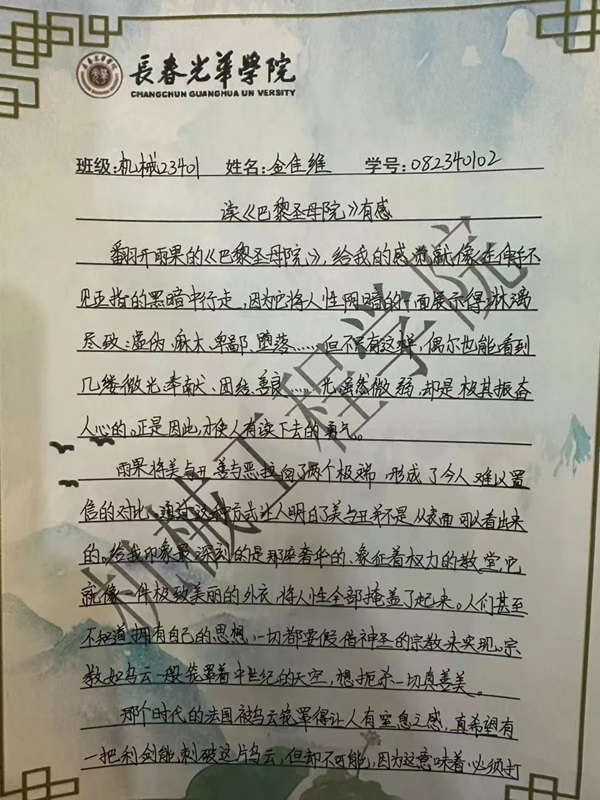 長春光華學院
CHANGCHUN GUANGHUA UN VERSITY
班级:机械23401 姓名:金佳维 学号:082340102
读《巴黎圣母院》有感
翻开雨果的《巴黎圣母院》,给我的感觉就像在伸手不
见五指的黑暗中行走,因为它将人性阴暗的一面展示得淋漓
尽致:虚伪、麻木、卑鄙、堕落……但不只有这些,偶尔也能看到
几缕微光:奉献、团结、善良……光虽然微弱,却是极其振奋
人心的。正是因此,才使人有读下去的勇气。
雨果将美与丑、善与恶拉向了两个极端,形成了令人难以置
信的对比,通过这种方式让人明白了美与丑并不是从表面可以看出来
的。给我印象最深刻的是那座奢华的、象征着权力的教堂,它
就像一件极致美丽的外衣,将人性全部掩盖了起来。人们甚至
不知道拥有自己的思想,一切都要假借神圣的宗教来实现。宗
教如乌云一般笼罩着中世纪的天空,想扼杀一切真善美。
那个时代的法国被乌云笼罩得让人有窒息之感,真希望有
一把利剑能刺破这片乌云,但却不可能,因为这意味着必须打
机械工程学院